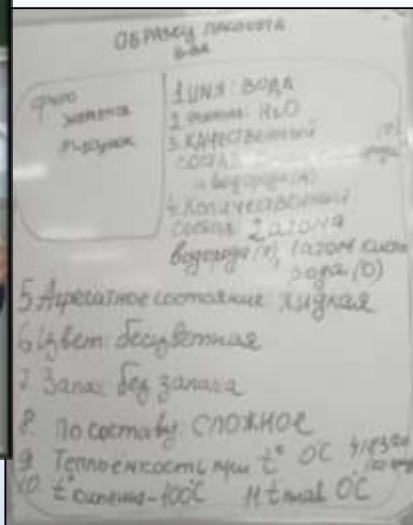 ОБРАЗЕЦ ПАСПОРТА
фото
рисунок
1. ИМЯ: ВОДА
2. H₂O
3. КАЧЕСТВЕННЫЙ
СОСТАВ
водорода (H)
4. КОЛИЧЕСТВЕННЫЙ
СОСТАВ: 2 атома
водорода (H), 1 атом кисло
рода (O)
5. Агрегатное состояние: жидкая
6. Цвет: бесцветная
7. Запах: без запаха
8. По составу: СЛОЖНОЕ
9. Теплоёмкость при t° 0°C
10. t° кипения - 100°C t° 0°C